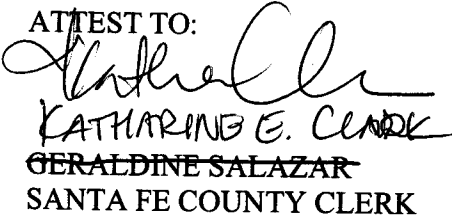 ATTEST TO:
Katharine Clark
KATHARINE E. CLARK
GERALDINE SALAZAR
SANTA FE COUNTY CLERK